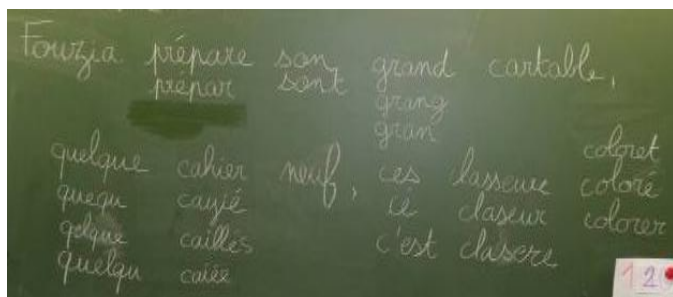 Fouzia prépare son grand cartable,
prépar sont grang
gran
coloret
quelque cahier neuf, ces lasseure coloré
quequ cayié ce claseur colorer
qelque cailles c'est clasere
quelqu caiée
12